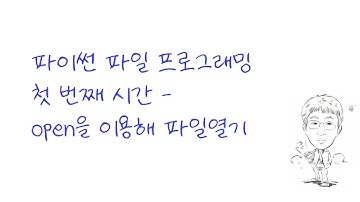 파이썬 파일 프로그래밍
첫 번째 시간 -
open을 이용해 파일열기